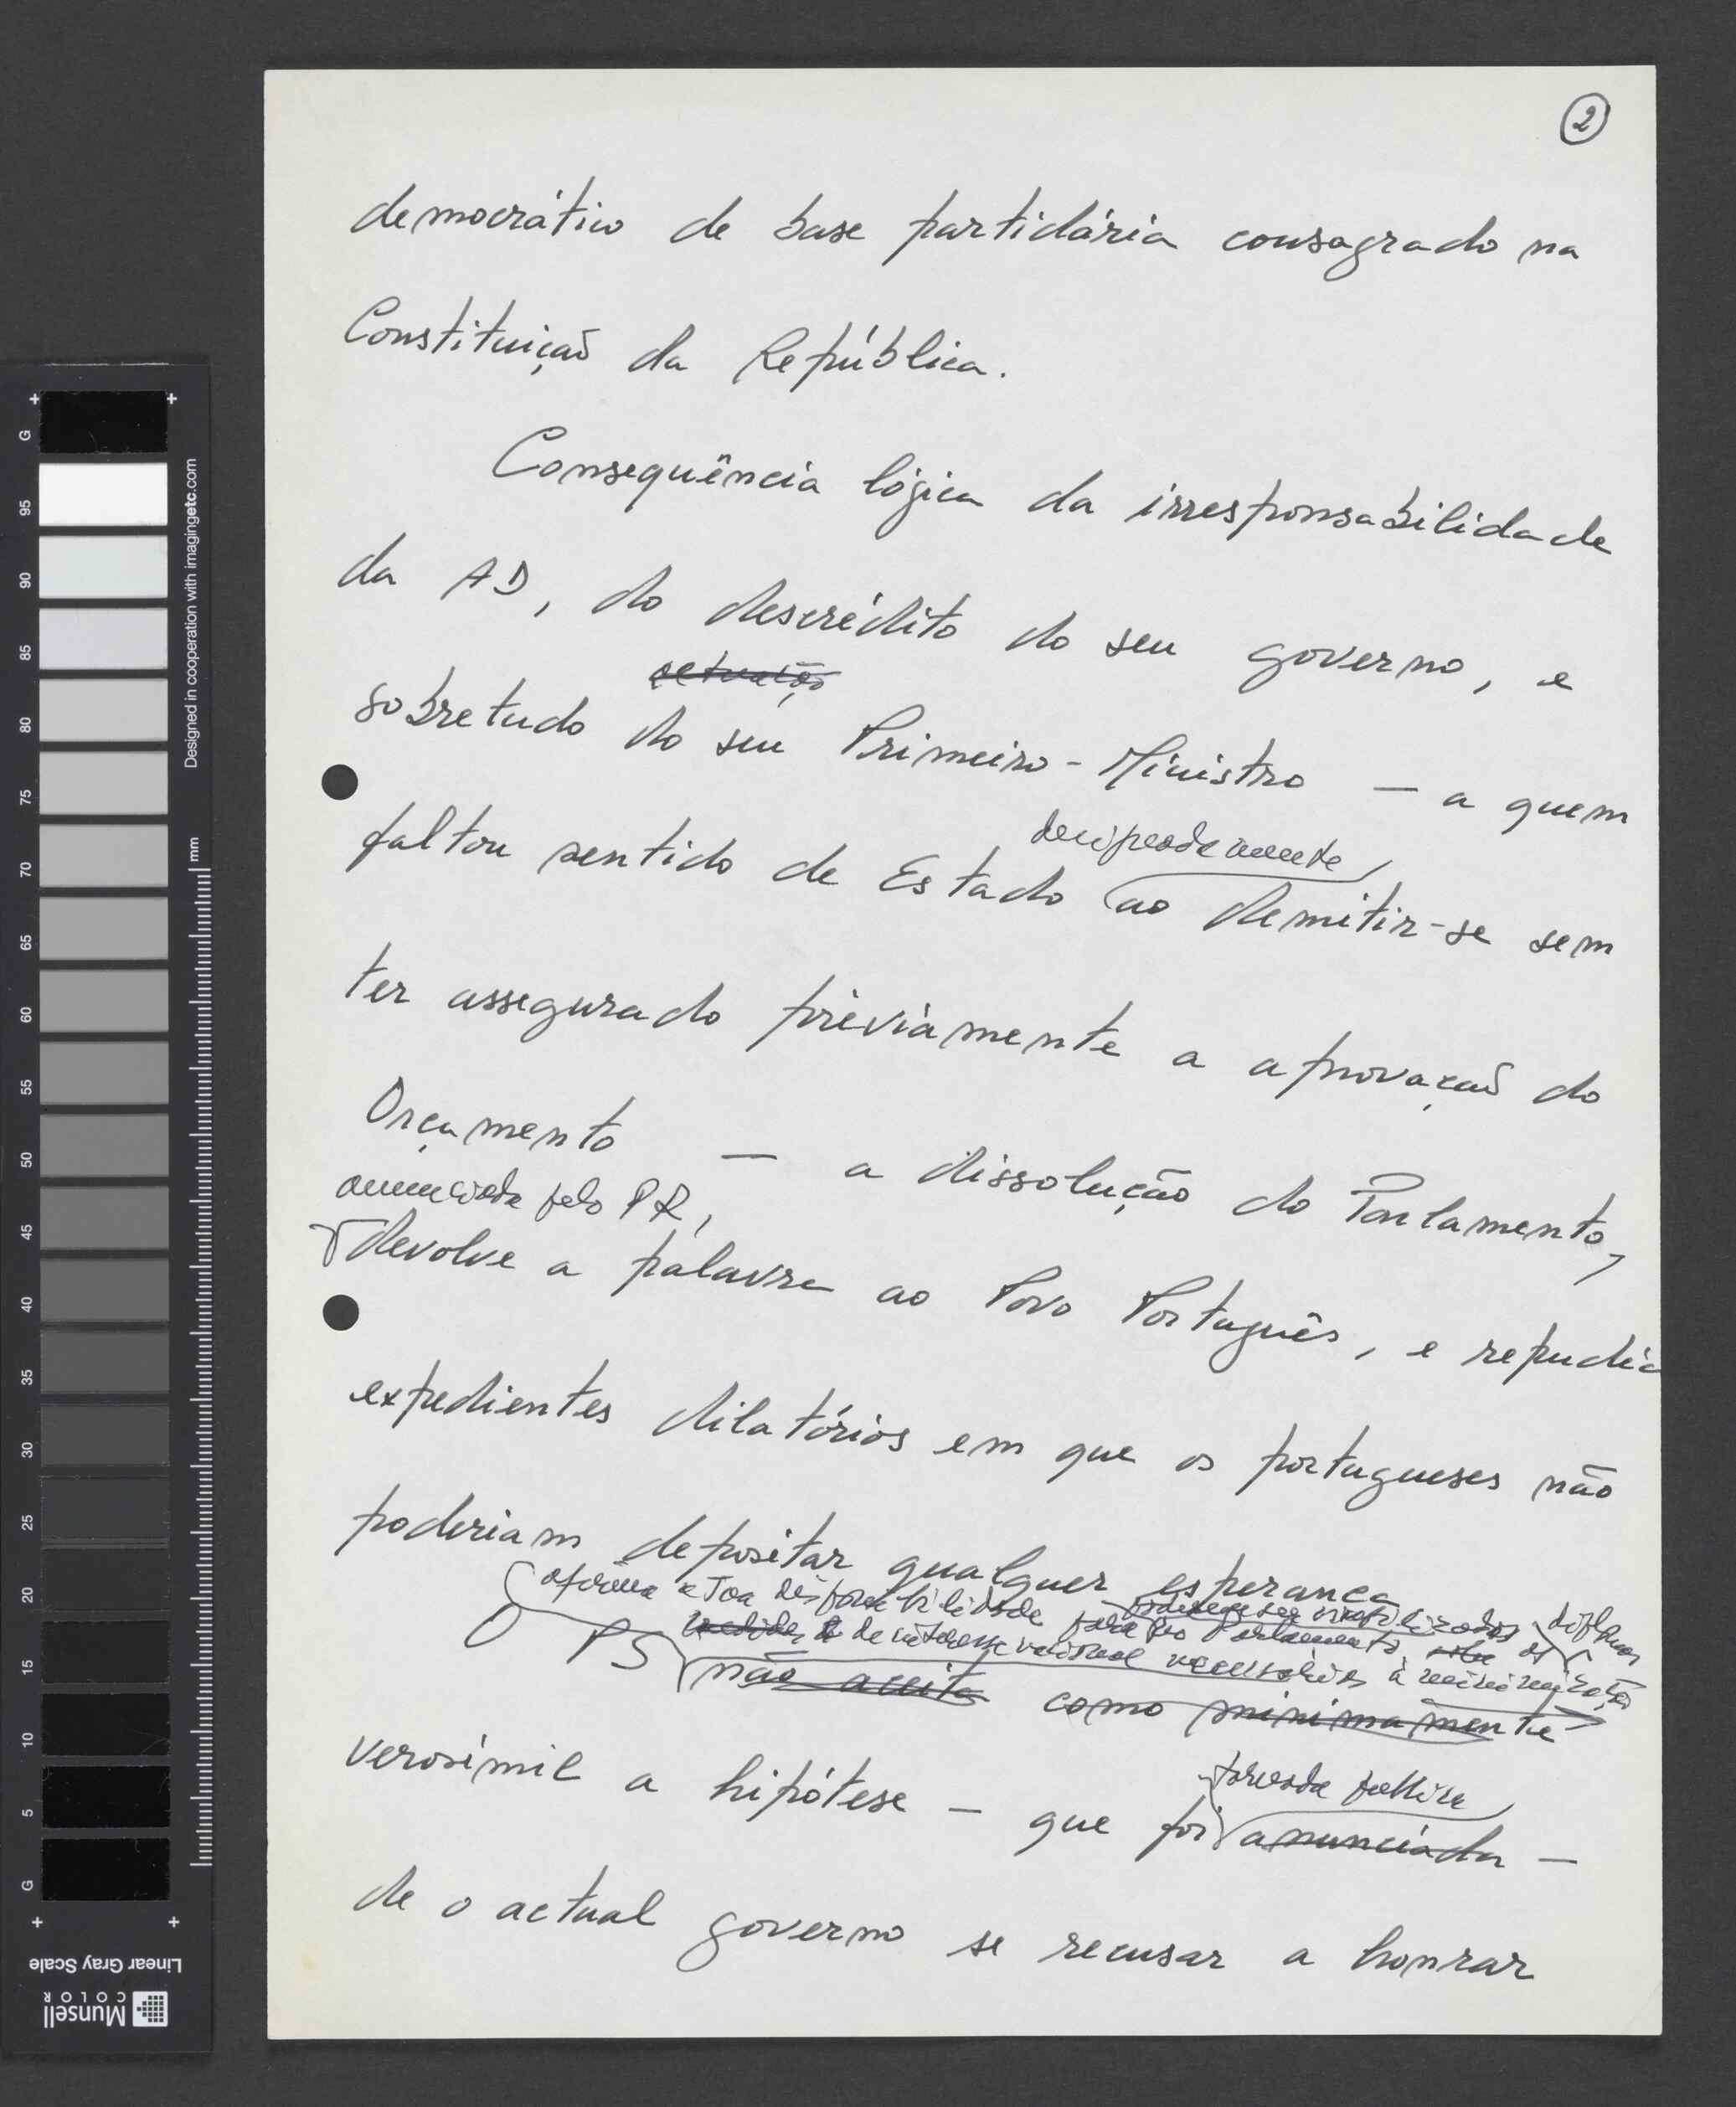 2
democrático de base partidária consagrado na
Constituição da República.
Consequência lógica da irresponsabilidade
da AD, do descrédito do seu governo, e
actuação
sobretudo do seu Primeiro-Ministro — a quem
faltou sentido de Estado ao demitir-se sem
ter assegurado préviamente a aprovação do
Orçamento — a dissolução do Parlamento,
anunciada pelo PR,
devolve a palavra ao Povo Português, e repudia
expedientes dilatórios em que os portugueses não
poderiam depositar qualquer esperança
afirma a sua disponibilidade para no Parlamento os diplomas
de interesse nacional necessários à
O PS não aceita como minimamente
verosímil a hipótese — que foi anunciada —
tornada pública
de o actual governo se recusar a honrar
Designed in cooperation with imagingetc.com
mm
G 95 90 85 80 75 70 65 60 55 50 45 40 35 30 25 20 15 10 5 G
Linear Gray Scale
Munsell
COLOR